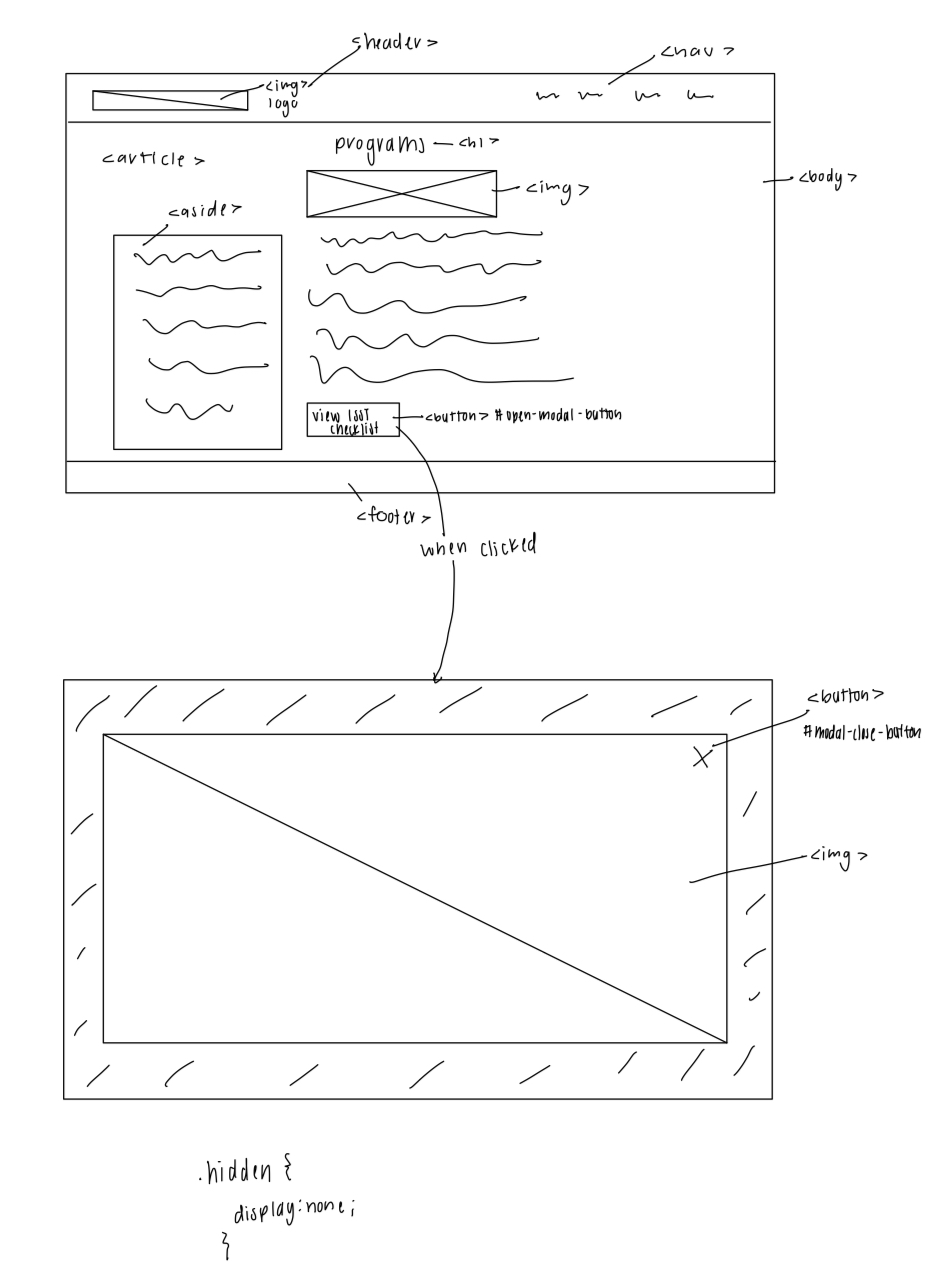 <header>
<nav>
<img>
logo
programs — <h1>
<article>
<body>
<img>
<aside>
view
checklist
<button> #open-modal-button
<footer>
when clicked
<button>
#modal-close-button
<img>
.hidden {
display:none;
}